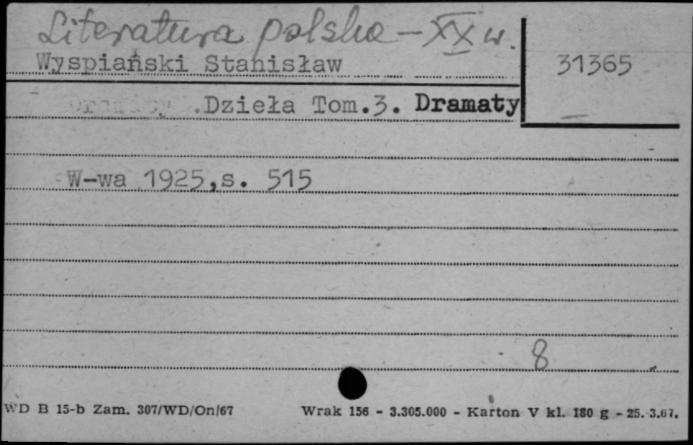 Literatura polska – XX w.
Wyspiański Stanisław
31365
Dzieła Tom.3. Dramaty
W-wa 1925,s. 515
8
WD B 15-b Zam. 307/WD/On/67 Wrak 156 - 3.305.000 - Karton V kl. 180 g - 25.3.67.